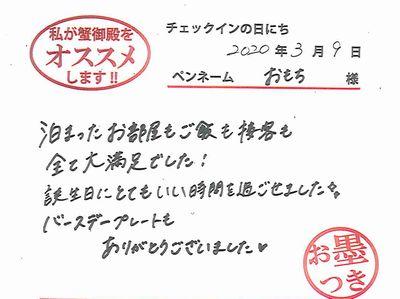 私が蟹御殿を
オススメ
します!!
チェックインの日にち
2020年3月9日
ペンネーム おもち 様
泊まったお部屋もご飯も接客も
全て大満足でした!
誕生日にとてもいい時間を過ごせました
バースデープレートも
ありがとうございました♥
お墨
つき